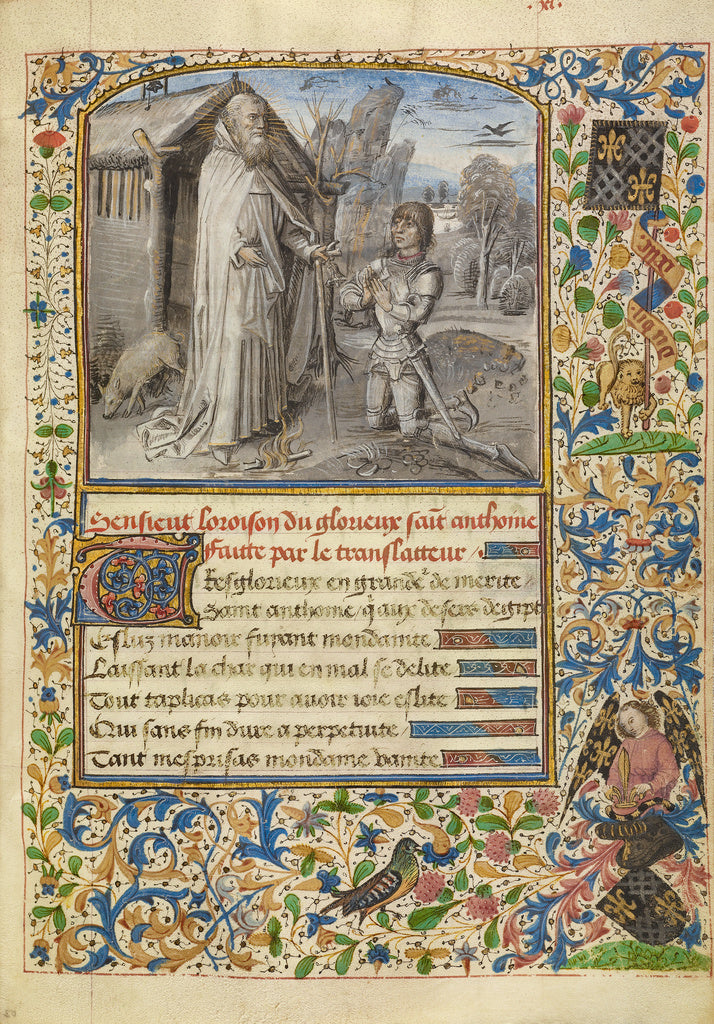 .xl.
Sensieut loroison du glorieux sait anthoine
faitte par le translatteur /
Tresglorieux en de merite /
Saint anthoine / q aux degipt
Esluz manoir fuiant mondainite
Laissant la char qui en mal se delite
Tout taplicas pour auoir voie eslite
Qui sans fin dure a perpetuite
Tant mesprisas mondaine vanite